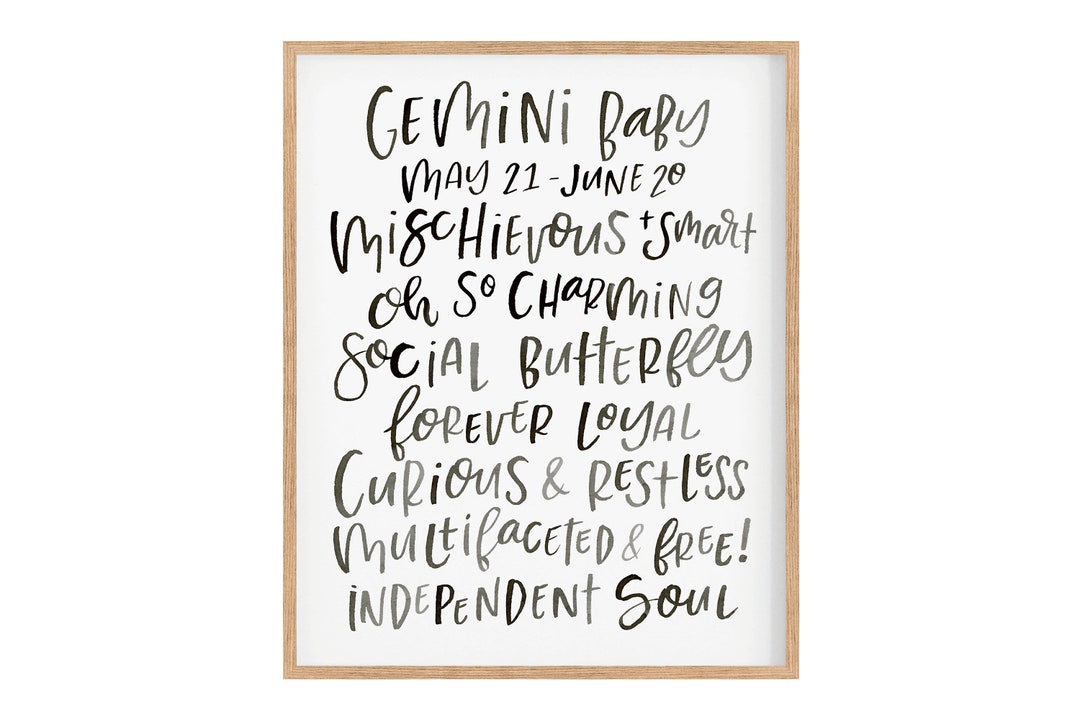 GEMINI baby
MAY 21 - JUNE 20
MISCHIEVOUS + smart
oh so CHARMING
SOCIAL BUTTERFLY
FOREVER LOYAL
CURIOUS & RESTLESS
MULTIFACETED & FREE!
INDEPENDENT SOUL